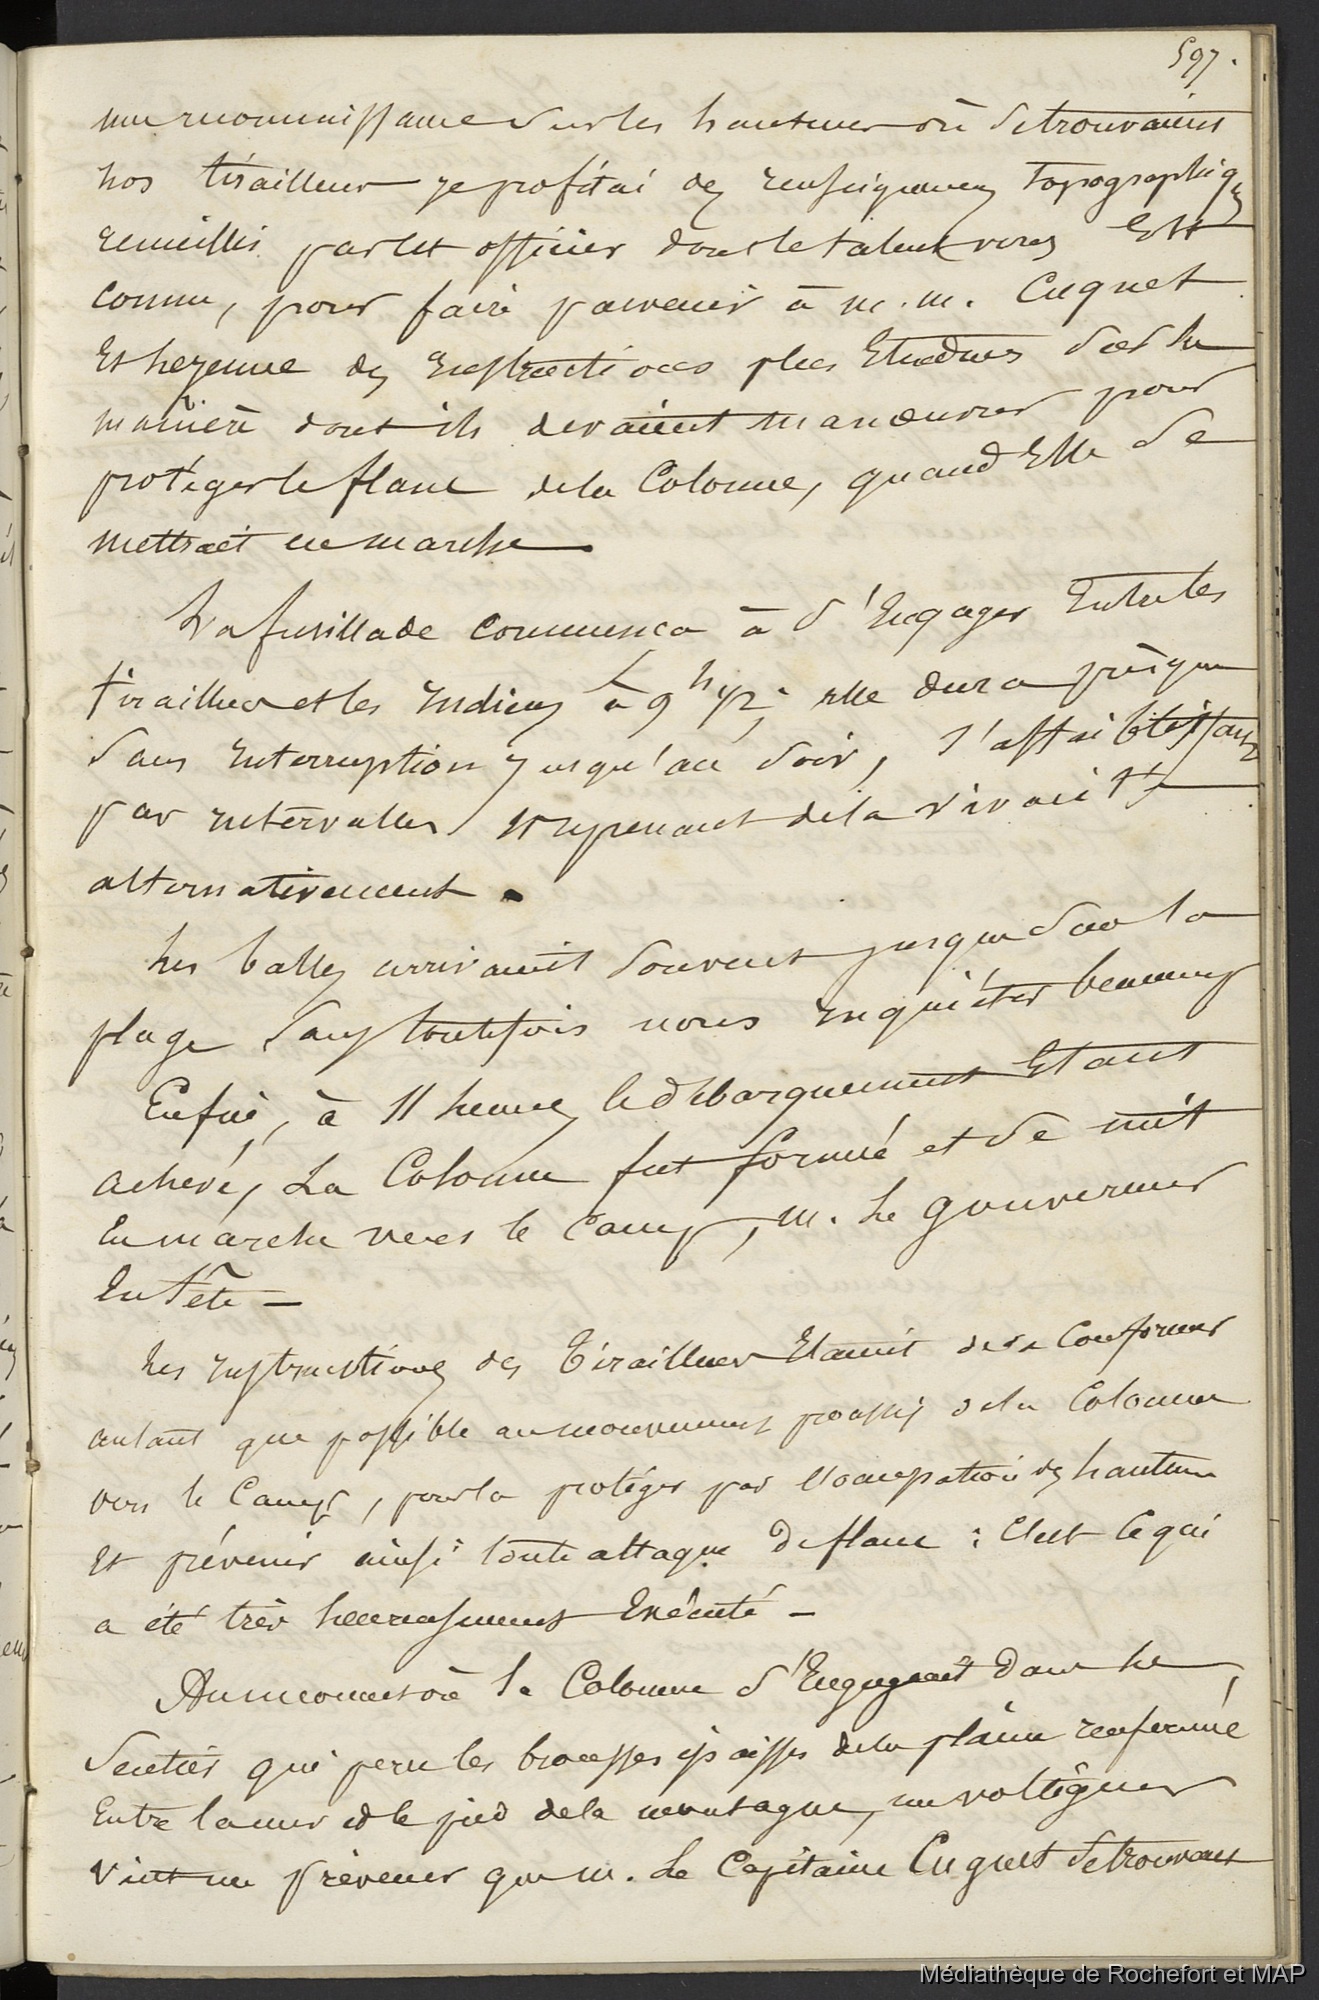 597.
une reconnaissance sur les hauteurs où se trouvaient
nos tirailleurs je profitai des renseignemens topographiques
recueillis par cet officier dont le talent vous est
connu, pour faire parvenir à m.m. Cuquet
et des instructions plus étendues sur la
manière dont ils devaient manœuvrer pour
protéger le flanc de la Colonne, quand elle se
mettrait en marche.
La fusillade commença à s'engager entre les
tirailleurs et les indiens à 9 h 1/2; elle dura presque
sans interruption jusqu'au soir, s'affaiblissant
par intervalles et reprenant de la vivacité
alternativement.
Les balles arrivaient souvent jusque sur la
plage sans toutefois nous inquiéter beaucoup
Enfin, à 11 heures, le débarquement étant
achevé, La Colonne fut formée et se mit
en marche vers le Camp, m. le gouverneur
en tête —
Les instructions des Tirailleurs étaient de se conformer
autant que possible au mouvement de la Colonne
vers le Camp, pour la protéger par l'occupation des hauteurs
et prévenir ainsi toute attaque de flanc : c'est ce qui
a été très heureusement exécuté —
Au moment où la Colonne s'engageait dans le
sentier qui perce les brousses épaisses de la plaine renfermée
entre la mer et le pied de la montagne, un voltigeur
vint me prévenir que m. le Capitaine Cuquet se trouvant
Médiathèque de Rochefort et MAP